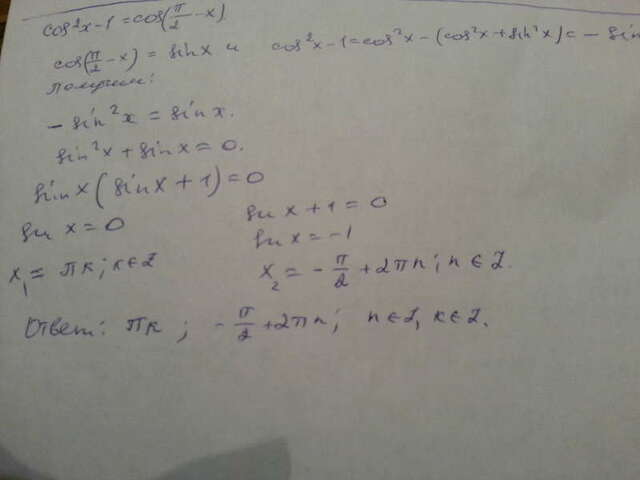 cos²x-1=cos(π/2-x).
cos(π/2-x)=sinx и cos²x-1=cos²x-(cos²x+sin²x)=-sin
получим:
-sin²x=sinx.
sin²x+sinx=0.
sinx(sinx+1)=0
sin x=0 sin x+1=0
sin x=-1
x₁=πk; k∈Z x₂=-π/2+2πn; n∈Z.
Ответ: πk; -π/2+2πn; n∈Z, k∈Z.